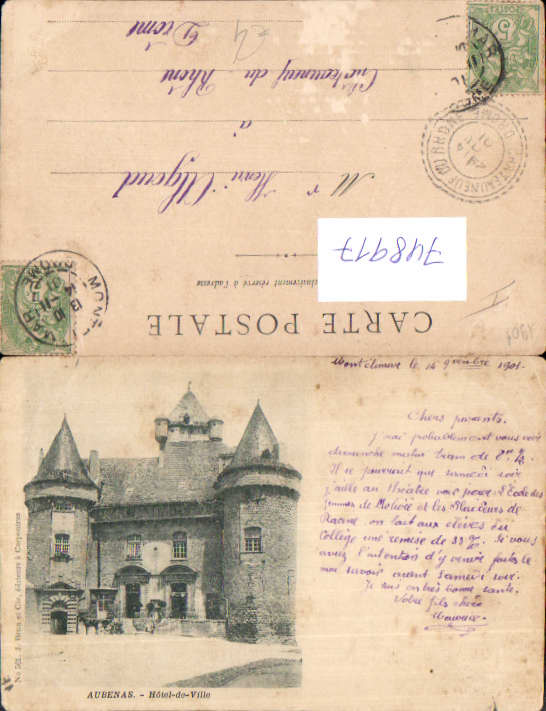 CARTE POSTALE
exclusivement réservé à l'adresse
748917
Mr Henri
à
Châteauneuf du Rhône
Drôme
Montélimar le 14 9bre 1901.
Chers parents.
J'irai probablement vous voir
dimanche matin train de 8h ½
Il se pourrait que samedi soir
j'aille au théâtre voir jouer l'Ecole des
femmes de Molière et les Plaideurs de
Racine, on fait aux élèves du
Collège une remise de 33 %. Si vous
avez l'intention d'y venir faites le
moi savoir avant samedi soir.
Je suis en très bonne santé.
Votre fils chéri
Maurice
No 521. J. Brun et Cie, éditeurs à Carpentras
AUBENAS. - Hôtel-de-Ville